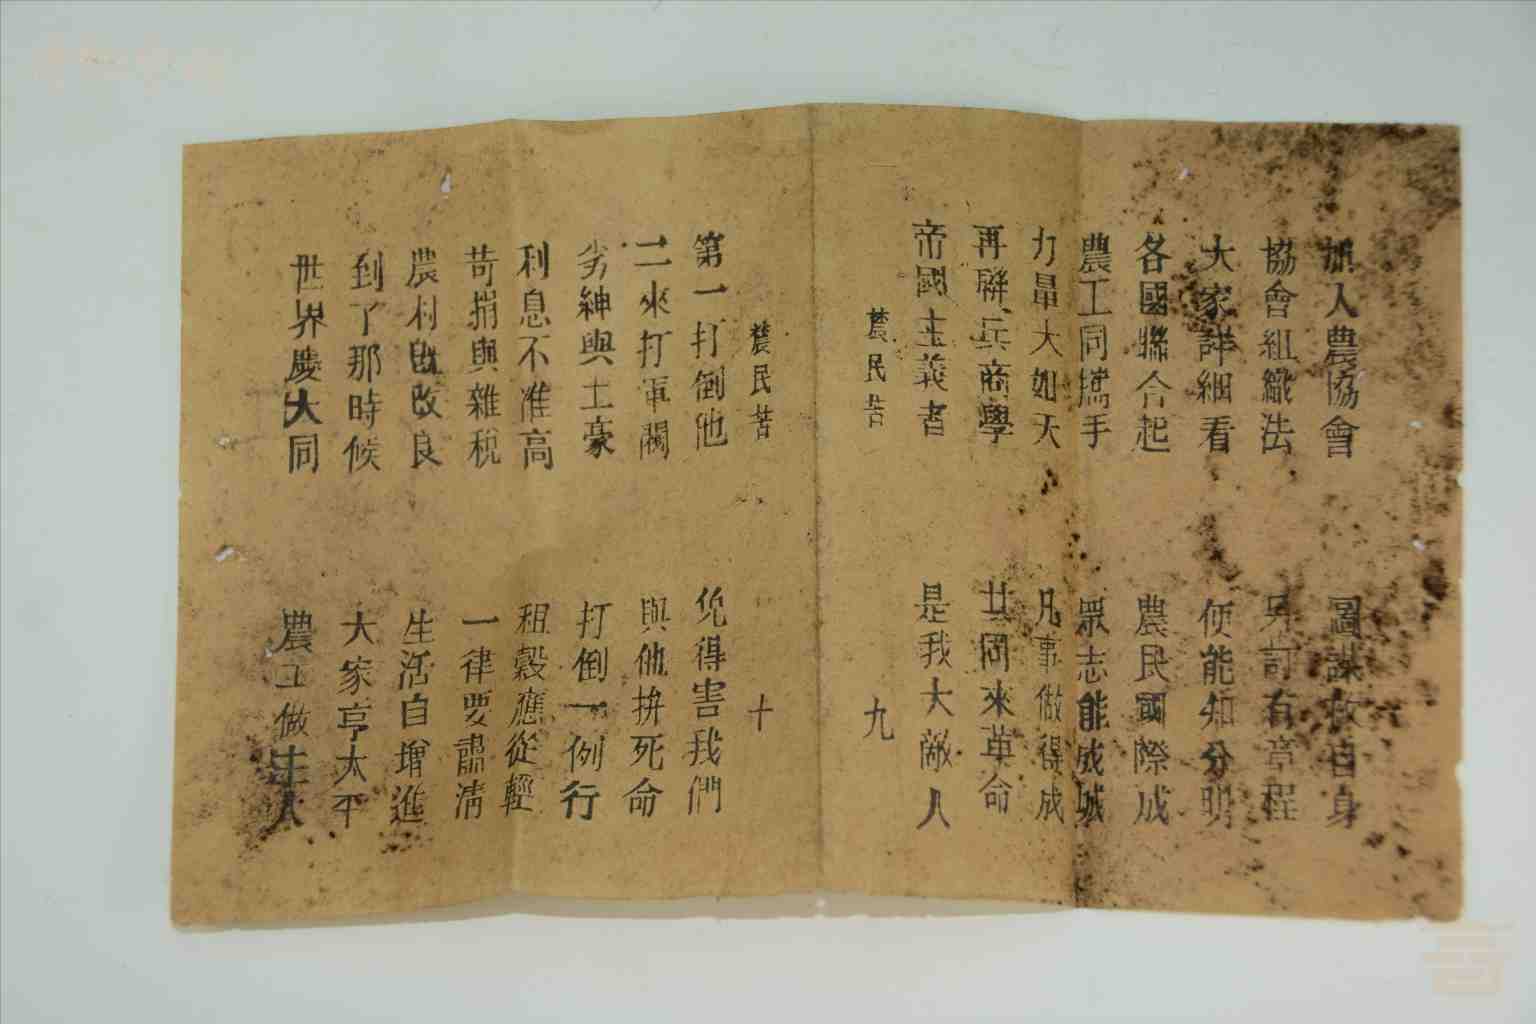 加入農協會 圖謀救自身
協會組織法 另訂有章程
大家詳細看 便能知分明
各國聯合起 農民國際成
農工同攜手 眾志能成城
力量大如天 凡事做得成
再聯兵商學 共同來革命
帝國主義者 是我大敵人
農民苦 九
農民苦 十
第一打倒他 免得害我們
二來打軍閥 與他拚死命
劣紳與土豪 打倒一例行
利息不准高 租穀應從輕
苛捐與雜稅 一律要肅清
農村既改良 生活自增進
到了那時候 大家享太平
世界慶大同 農工做主人